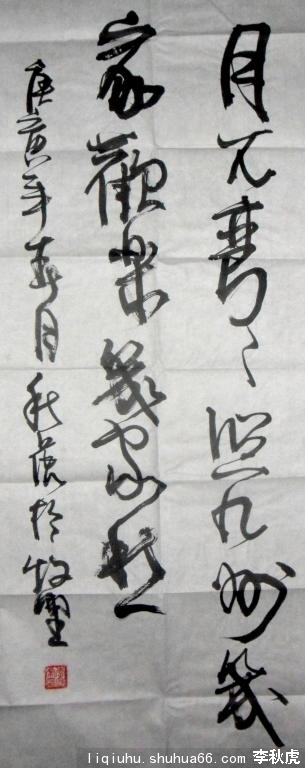 月兒彎々照九州幾
家歡樂幾家愁
庚寅年春月秋虎於牧野
liqiuhu.shuhua66.com 李秋虎